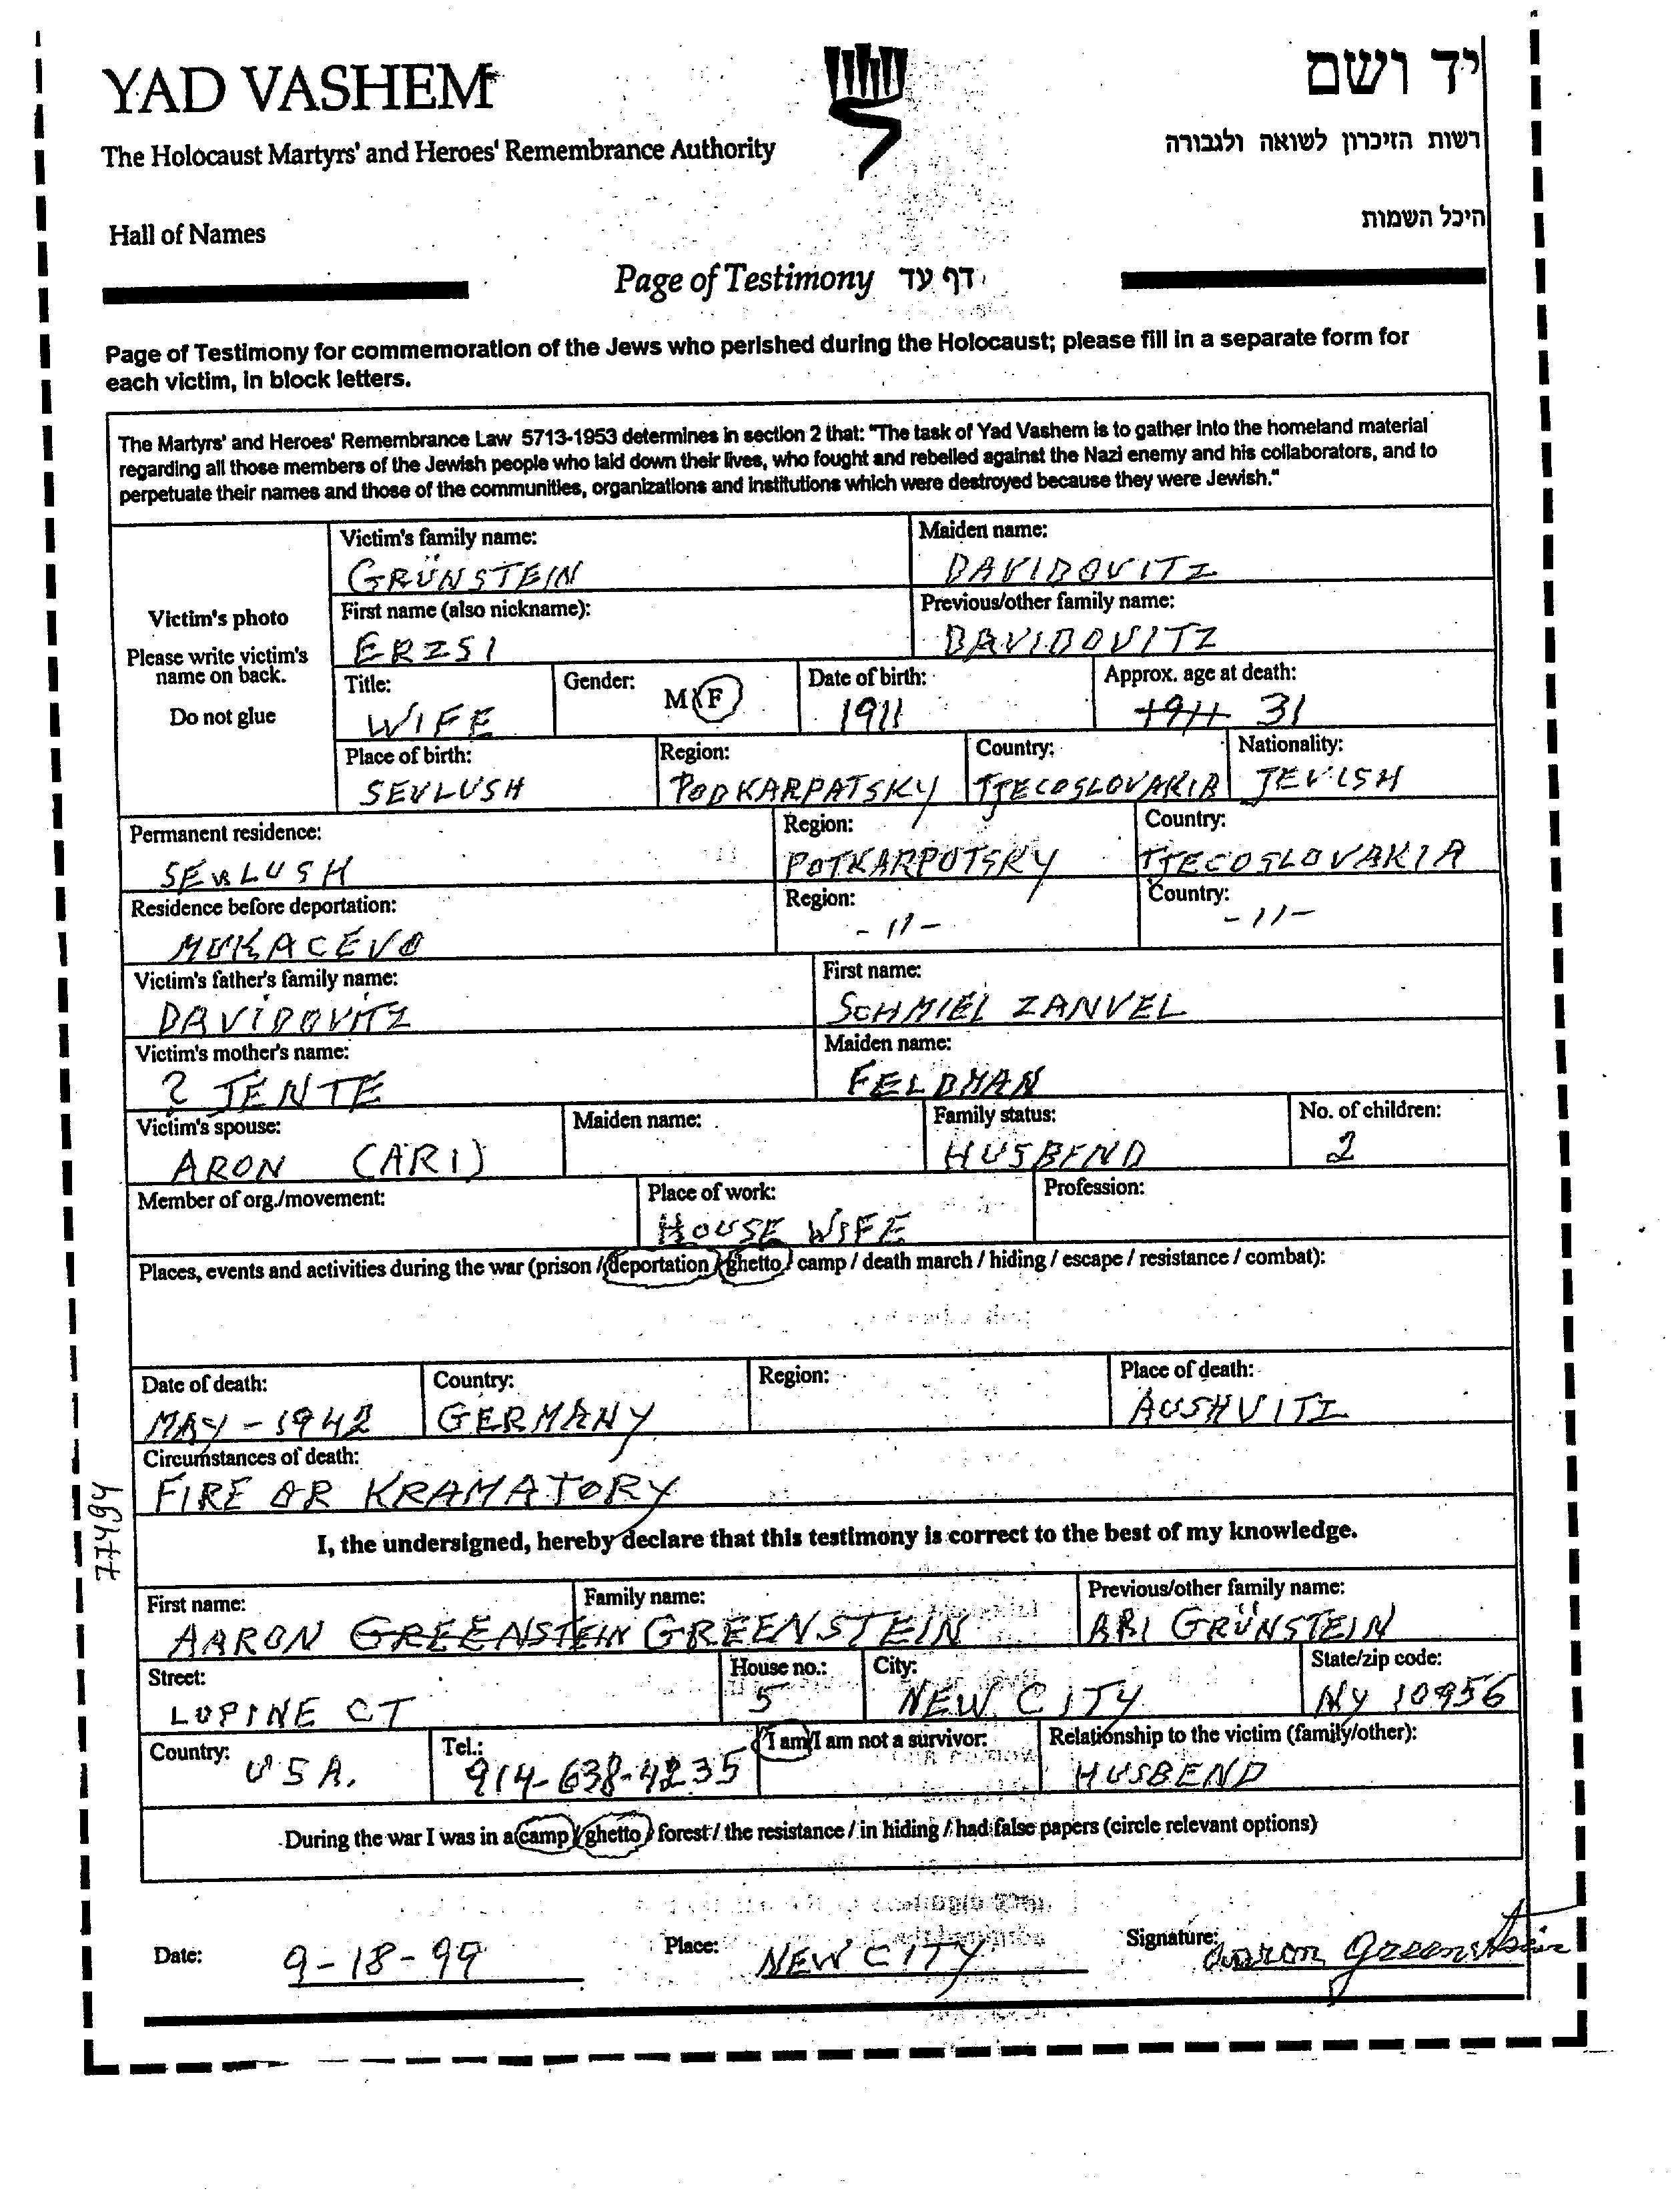 YAD VASHEM
יד ושם
The Holocaust Martyrs' and Heroes' Remembrance Authority
רשות הזיכרון לשואה ולגבורה
Hall of Names
היכל השמות
Page of Testimony דף עד
Page of Testimony for commemoration of the Jews who perished during the Holocaust; please fill in a separate form for
each victim, in block letters.
The Martyrs' and Heroes' Remembrance Law 5713-1953 determines in section 2 that: "The task of Yad Vashem is to gather into the homeland material
regarding all those members of the Jewish people who laid down their lives, who fought and rebelled against the Nazi enemy and his collaborators, and to
perpetuate their names and those of the communities, organizations and institutions which were destroyed because they were Jewish."
Victim's photo
Please write victim's
name on back.
Do not glue
Victim's family name: Maiden name:
GRÜNSTEIN DAVIDOVITZ
First name (also nickname): Previous/other family name:
ERZSI DAVIDOVITZ
Title: Gender: M/F Date of birth: Approx. age at death:
WIFE 1911 1911 31
Place of birth: Region: Country: Nationality:
SEVLUSH PODKARPATSKY TJECOSLOVAKIA JEVISH
Permanent residence: Region: Country:
SEVLUSH POTKARPOTSKY TJECOSLOVAKIA
Residence before deportation: Region: Country:
MUKACEVO -11- -11-
Victim's father's family name: First name:
DAVIDOVITZ SCHMIEL ZANVEL
Victim's mother's name: Maiden name:
? JENTE FELDMAN
Victim's spouse: Maiden name: Family status: No. of children:
ARON (ARI) HUSBEND 2
Member of org./movement: Place of work: Profession:
HOUSE WIFE
Places, events and activities during the war (prison / deportation / ghetto / camp / death march / hiding / escape / resistance / combat):
Date of death: Country: Region: Place of death:
MAY-1942 GERMANY AUSHVITZ
Circumstances of death:
FIRE OR KRAMATORY
77494
I, the undersigned, hereby declare that this testimony is correct to the best of my knowledge.
First name: Family name: Previous/other family name:
AARON GREENSTEIN GREENSTEIN ARI GRÜNSTEIN
Street: House no.: City: State/zip code:
LUPINE CT 5 NEW CITY NY 10956
Country: Tel.: I am/I am not a survivor: Relationship to the victim (family/other):
USA. 914-638-4235 HUSBEND
During the war I was in a camp / ghetto / forest / the resistance / in hiding / had false papers (circle relevant options)
Date: 9-18-99 Place: NEW CITY Signature: Aaron Greenstein